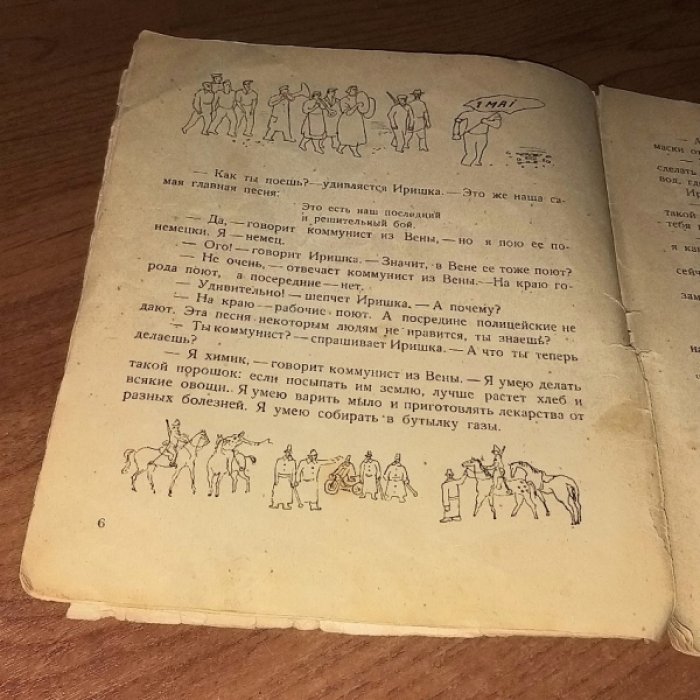 1 MAI
— Как ты поешь?—удивляется Иришка.—Это же наша са-
мая главная песня:
Это есть наш последний
и решительный бой.
— Да, — говорит коммунист из Вены, — но я пою ее по-
немецки. Я — немец.
— Ого! — говорит Иришка. — Значит, в Вене ее тоже поют?
— Не очень, — отвечает коммунист из Вены. — На краю го-
рода поют, а посередине — нет.
— Удивительно! — шепчет Иришка. — А почему?
— На краю — рабочие поют. А посредине полицейские не
дают. Эта песня некоторым людям не нравится, ты знаешь?
— Ты коммунист? — спрашивает Иришка. — А что ты теперь
делаешь?
— Я химик, — говорит коммунист из Вены. — Я умею делать
такой порошок: если посыпать им землю, лучше растет хлеб и
всякие овощи. Я умею варить мыло и приготовлять лекарства от
разных болезней. Я умею собирать в бутылку газы.
6
маски от
сделать
вод, где
такой
тебя
я как
сейч
зам
на